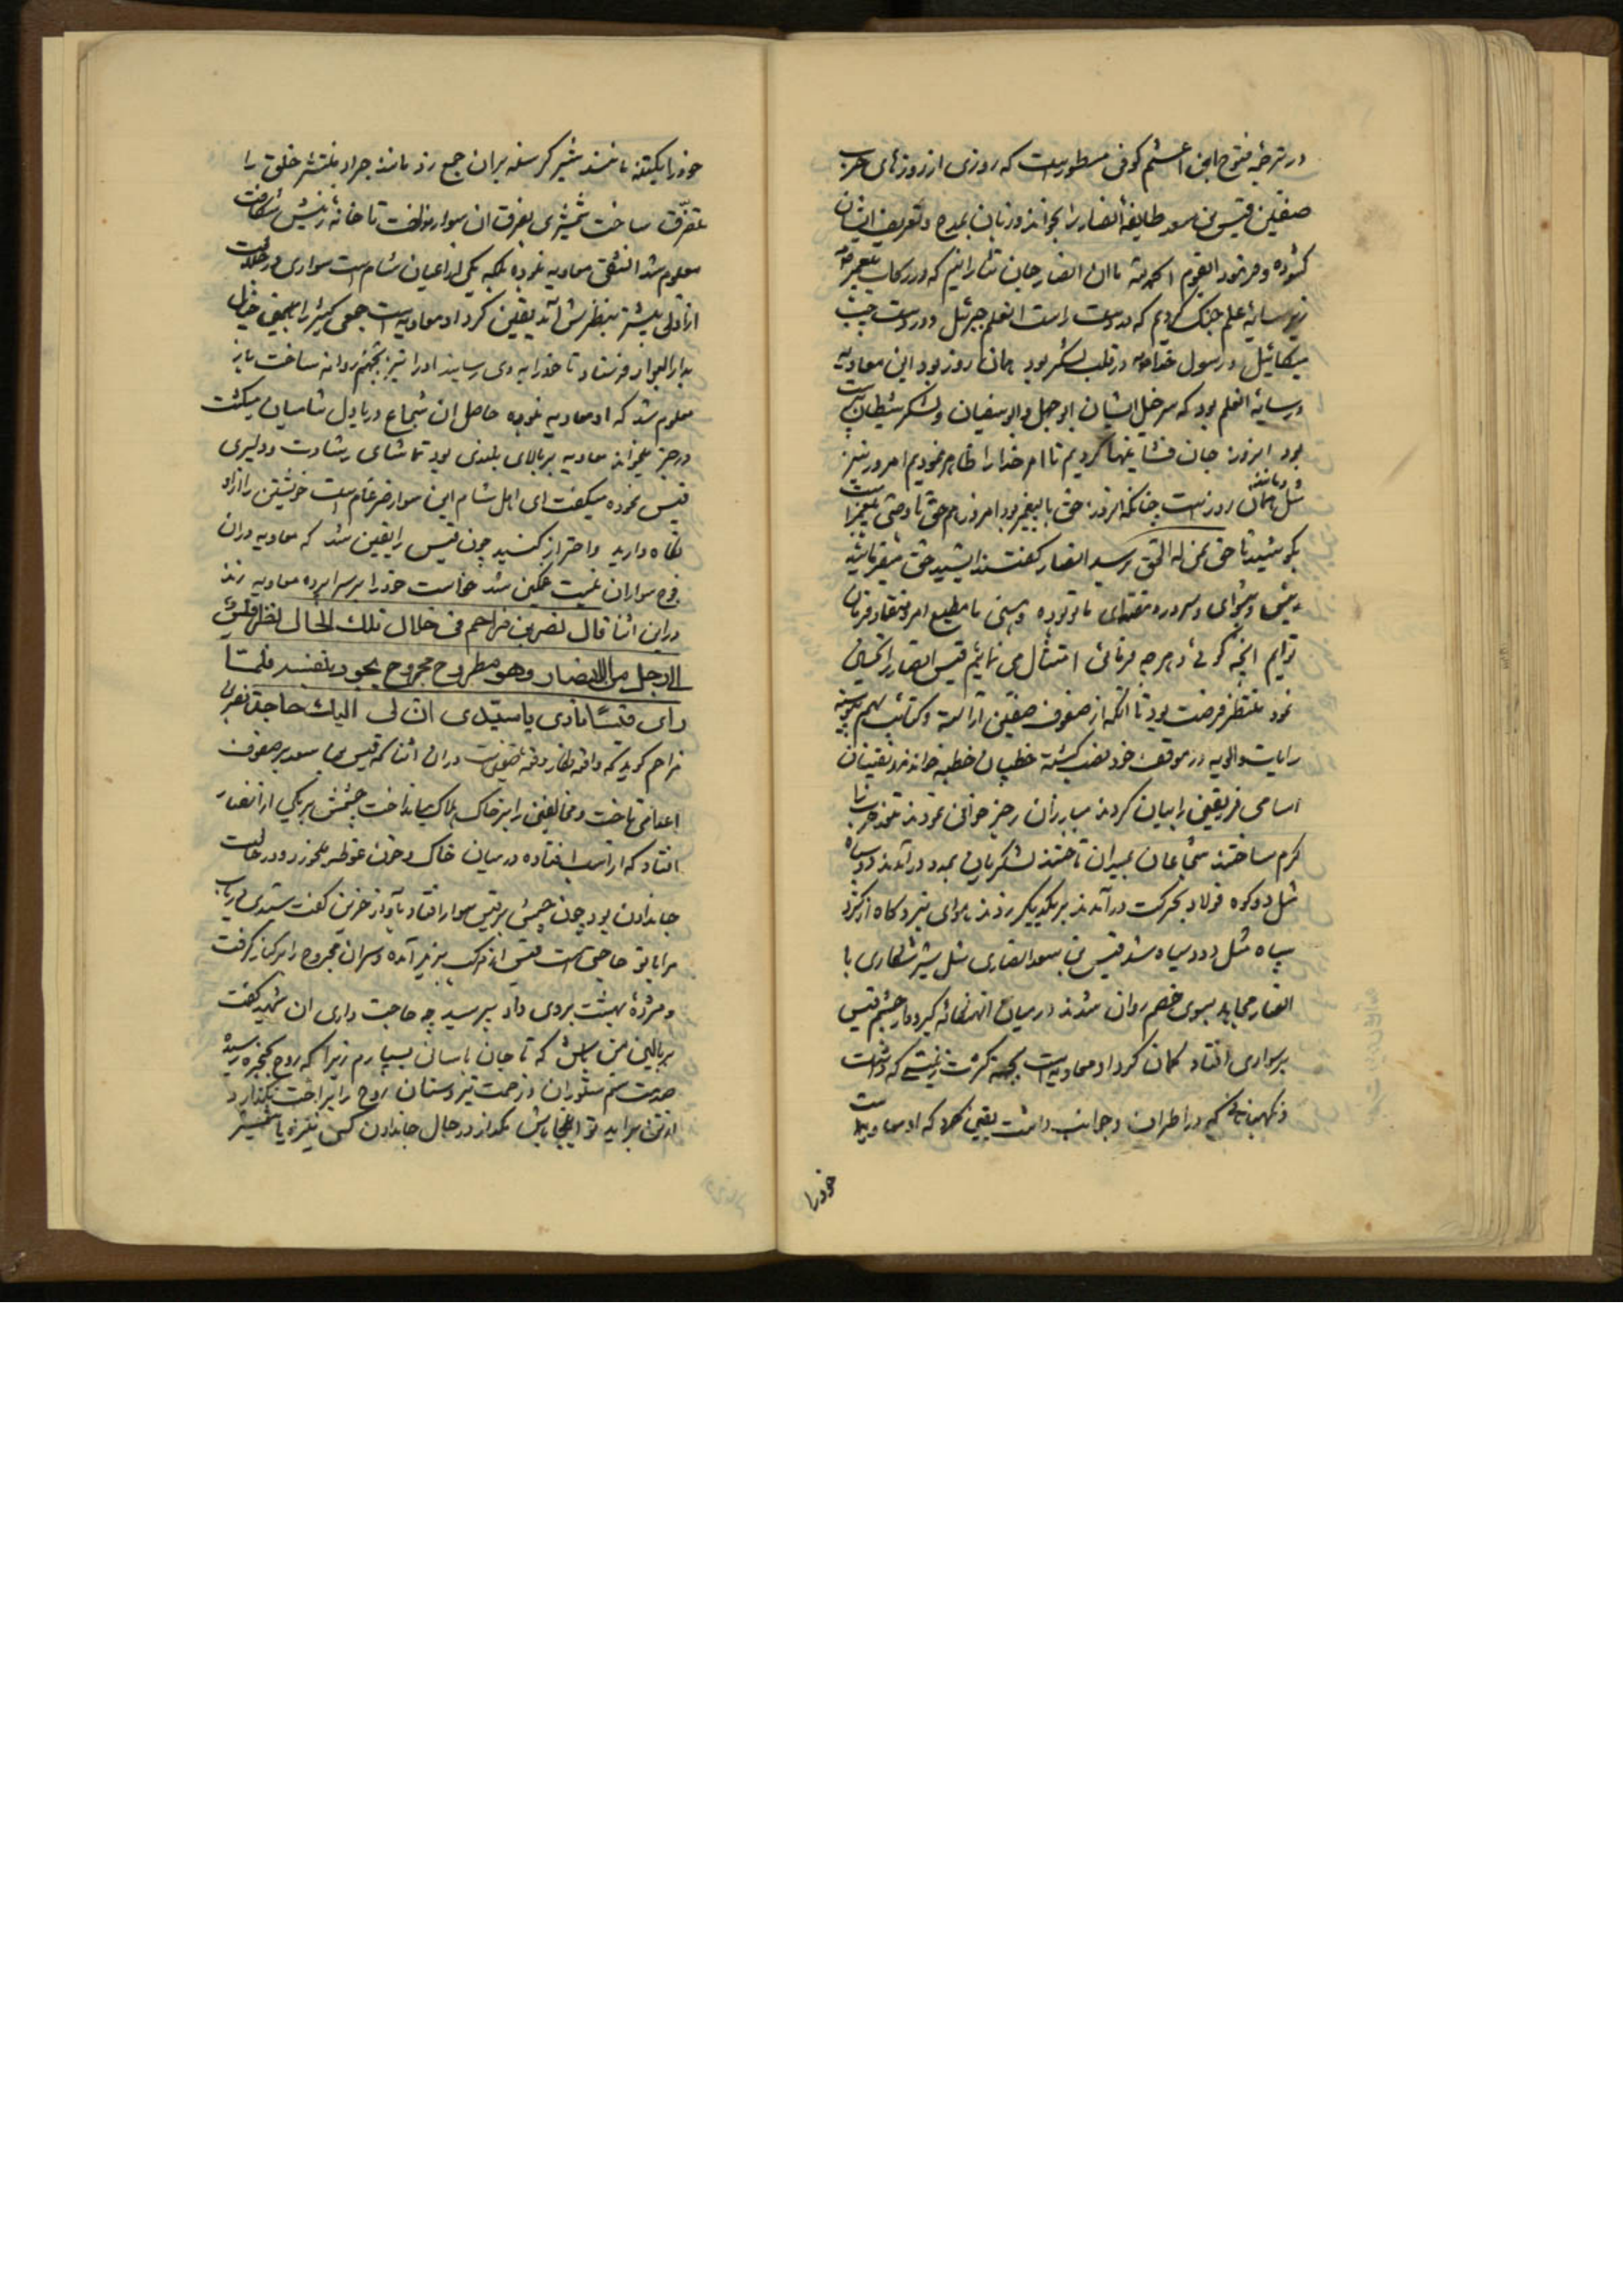 در ترجمه فتوح ابن اعثم کوفی مسطور است که روزی از روزهای حرب
صفین قیس بن سعد طایفه انصار را بخواند و زبان بمدح و تعریف ایشان
کشوده و فرمود ایقوم الحمد لله ما ان انصار جان نثارانیم که در رکاب پیغمبر
زیر سایه علم جنک کردیم که در دست راست انعلم جبرئیل و در دست چپش
میکائیل و رسول خدا در قلب لشکر بود همان روز بود این معاویه
در سایه انعلم بود که سرخیل ایشان ابوجهل و ابوسفیان و لشکر شیطان
بود امروز جان فشانیها کردیم تا امر خدا را ظاهر نمودیم امروز نیز
مثل و مانند همان روز است چنانکه انروز حق با پیغمبر بود امروز هم حق با وصی پیغمبر است
بکوشید تا حق بمن له الحق رسد انصار کفتند
پیش و پیشوای و سرور و مقتدای ما تو بوده و هستی ما مطیع امر و منقاد فرمان
توایم انچه کوئی و هرچه فرمائی امتثال می نمائیم قیس انصار را تحسین
نمود منتظر فرصت بود تا انکه از صفوف صفین اراسته و کتائب بهم پیوسته
رایات و الویه در موقف خود نصب کشته خطیبان خطبه خواندند و نقیبان
اسامی فریقین را بیان کردند مبارزان رجز خوانی نمودند تنور حرب را
کرم ساختند شجاعان بمیدان تاختند لشکریان بمدد درآمدند دو سپاه
مثل دو کوه فولاد بحرکت درآمدند بر یکدیکر زدند هوای نبردکاه از کرد
سپاه مثل دود سیاه شد قیس بن سعد انصاری مثل شیر شکاری با
انصار مجاهد بسوی خصم روان شدند در میان انهنکامه کیر و دار چشم قیس
بر سواری افتاد کمان کرد او معاویه است بجهت کثرت زینتی که داشت
و نکهبانانی که در اطراف و جوانب داشت یقین کرد که او معاویه است
خود را
خود را یکتنه مانند شیر کرسنه بران جمع زد مانند جراد منتشر خلق را
متفرق ساخت شمشیری بفرق ان سوار نواخت تا خانه زینش شکافت
معلوم شد انشقی معاویه نبوده بلکه یکی از اعیان شام است سواری در جلالت
از اولی بیشتر بنظرش آمد یقین کرد او معاویه است جمعی کثیر را
بدار البوار فرستاد تا خود را به وی رسانید او را نیز بجهنم روانه ساخت باز
معلوم شد که او معاویه نبوده حاصل ان شجاع دریا دل شامیان میکشت
و رجز میخواند معاویه بر بالای بلندی بود تماشای رشادت و دلیری
قیس نموده میکفت ای اهل شام این سوار ضرغام است خویشتن را ازاو
نکاه دارید و احتراز کنید چون قیس را یقین شد که معاویه دران
فوج سواران نیست غمکین شد خواست خود را بر سراپرده معاویه زند
دراین اثنا قال نصر بن مزاحم فی خلال تلك الحال نظر قیس
الی رجل من الانصار وهو مطروح مجروح یجود بنفسه فلمّا
رای قیسًا نادی یا سیّدی ان لی الیك حاجة نصر بن
مزاحم کوید که دران اثنا که قیس بن سعد بر صفوف
اعدا می تاخت و مخالفین را بر خاک هلاک میانداخت چشمش بر یکی از انصار
افتاد که از اسب افتاده در میان خاک و خون غوطه میخورد و در حالت
جاندادن بود چون چشمش بر قیس سوار افتاد بآواز حزین کفت سیدی
مرا با تو حاجتی است قیس از مرکب بزیر آمده و سر ان مجروح را در کنار کرفت
و مژده بهشت بروی داد پرسید چه حاجت داری ان شهید کفت
بر بالین من باش که تا جان باسانی بسپارم زیرا که روح بحنجره رسیده
صدمت سم ستوران و زحمت تیردستان روح را براحت نکذارد
از تن براید تو اینجا باش مکذار در حال جاندادن کسی نیزه یا شمشیر